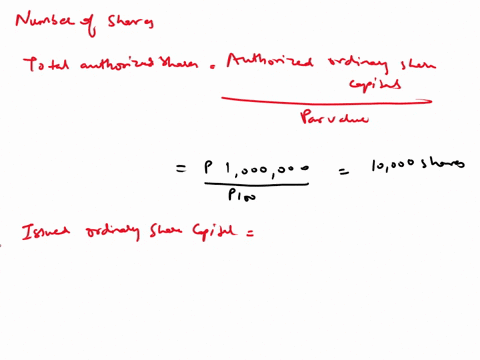 Number of Shares
Total authorized shares = Authorized ordinary share
capital
Par value
= P 1,000,000 = 10,000 shares
P100
Issued ordinary share capital =